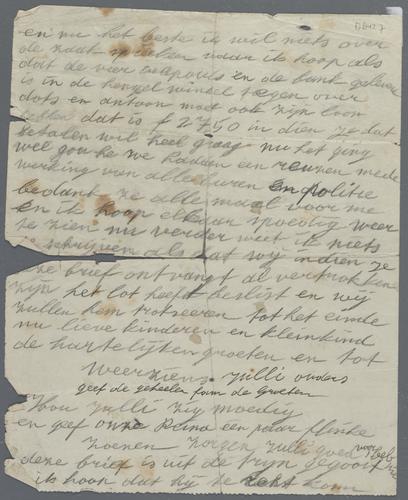 en nu het beste ik wil niets over
de zaak spreken maar ik hoop als
dat de vier en de bank geleverd
is in de winkel tegen over
dots en antoon moet ook zijn loon
hebben dat is f 27.50 in dien ze dat
betalen wil heel graag nu het ging
wel gou he we hadden een reuzen mede
werking van alle buren en politie
bedankt ze alle maal voor me
en ik hoop elkaar spoedig weer
te zien nu verder weet ik niets
te schrijven als dat wij indien ze
ze brief ontvangt al vertrokken
zijn het lot heeft beslist en wij
zullen hem trotseeren tot het einde
nu lieve kinderen en kleinkind
de hartelijken groeten en tot
Weerziens Jullie ouders
geef de geheelen fam de Groeten
Hou Jullie zig moedig
en geef onze een paar flinke
zoenen zorgen Jullie goed voor
deze brief is uit de trijn gegooit
ik hoop dat hij te recht kom